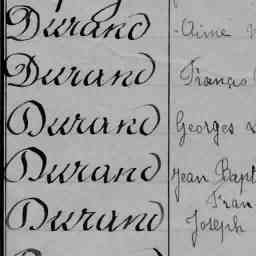 Durand Aimé
Durand François
Durand Georges
Durand Jean Bapt
Fran
Durand Joseph